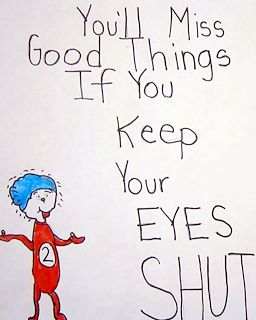 You'll Miss
Good Things
If You
Keep
Your
EYES
SHUT
2